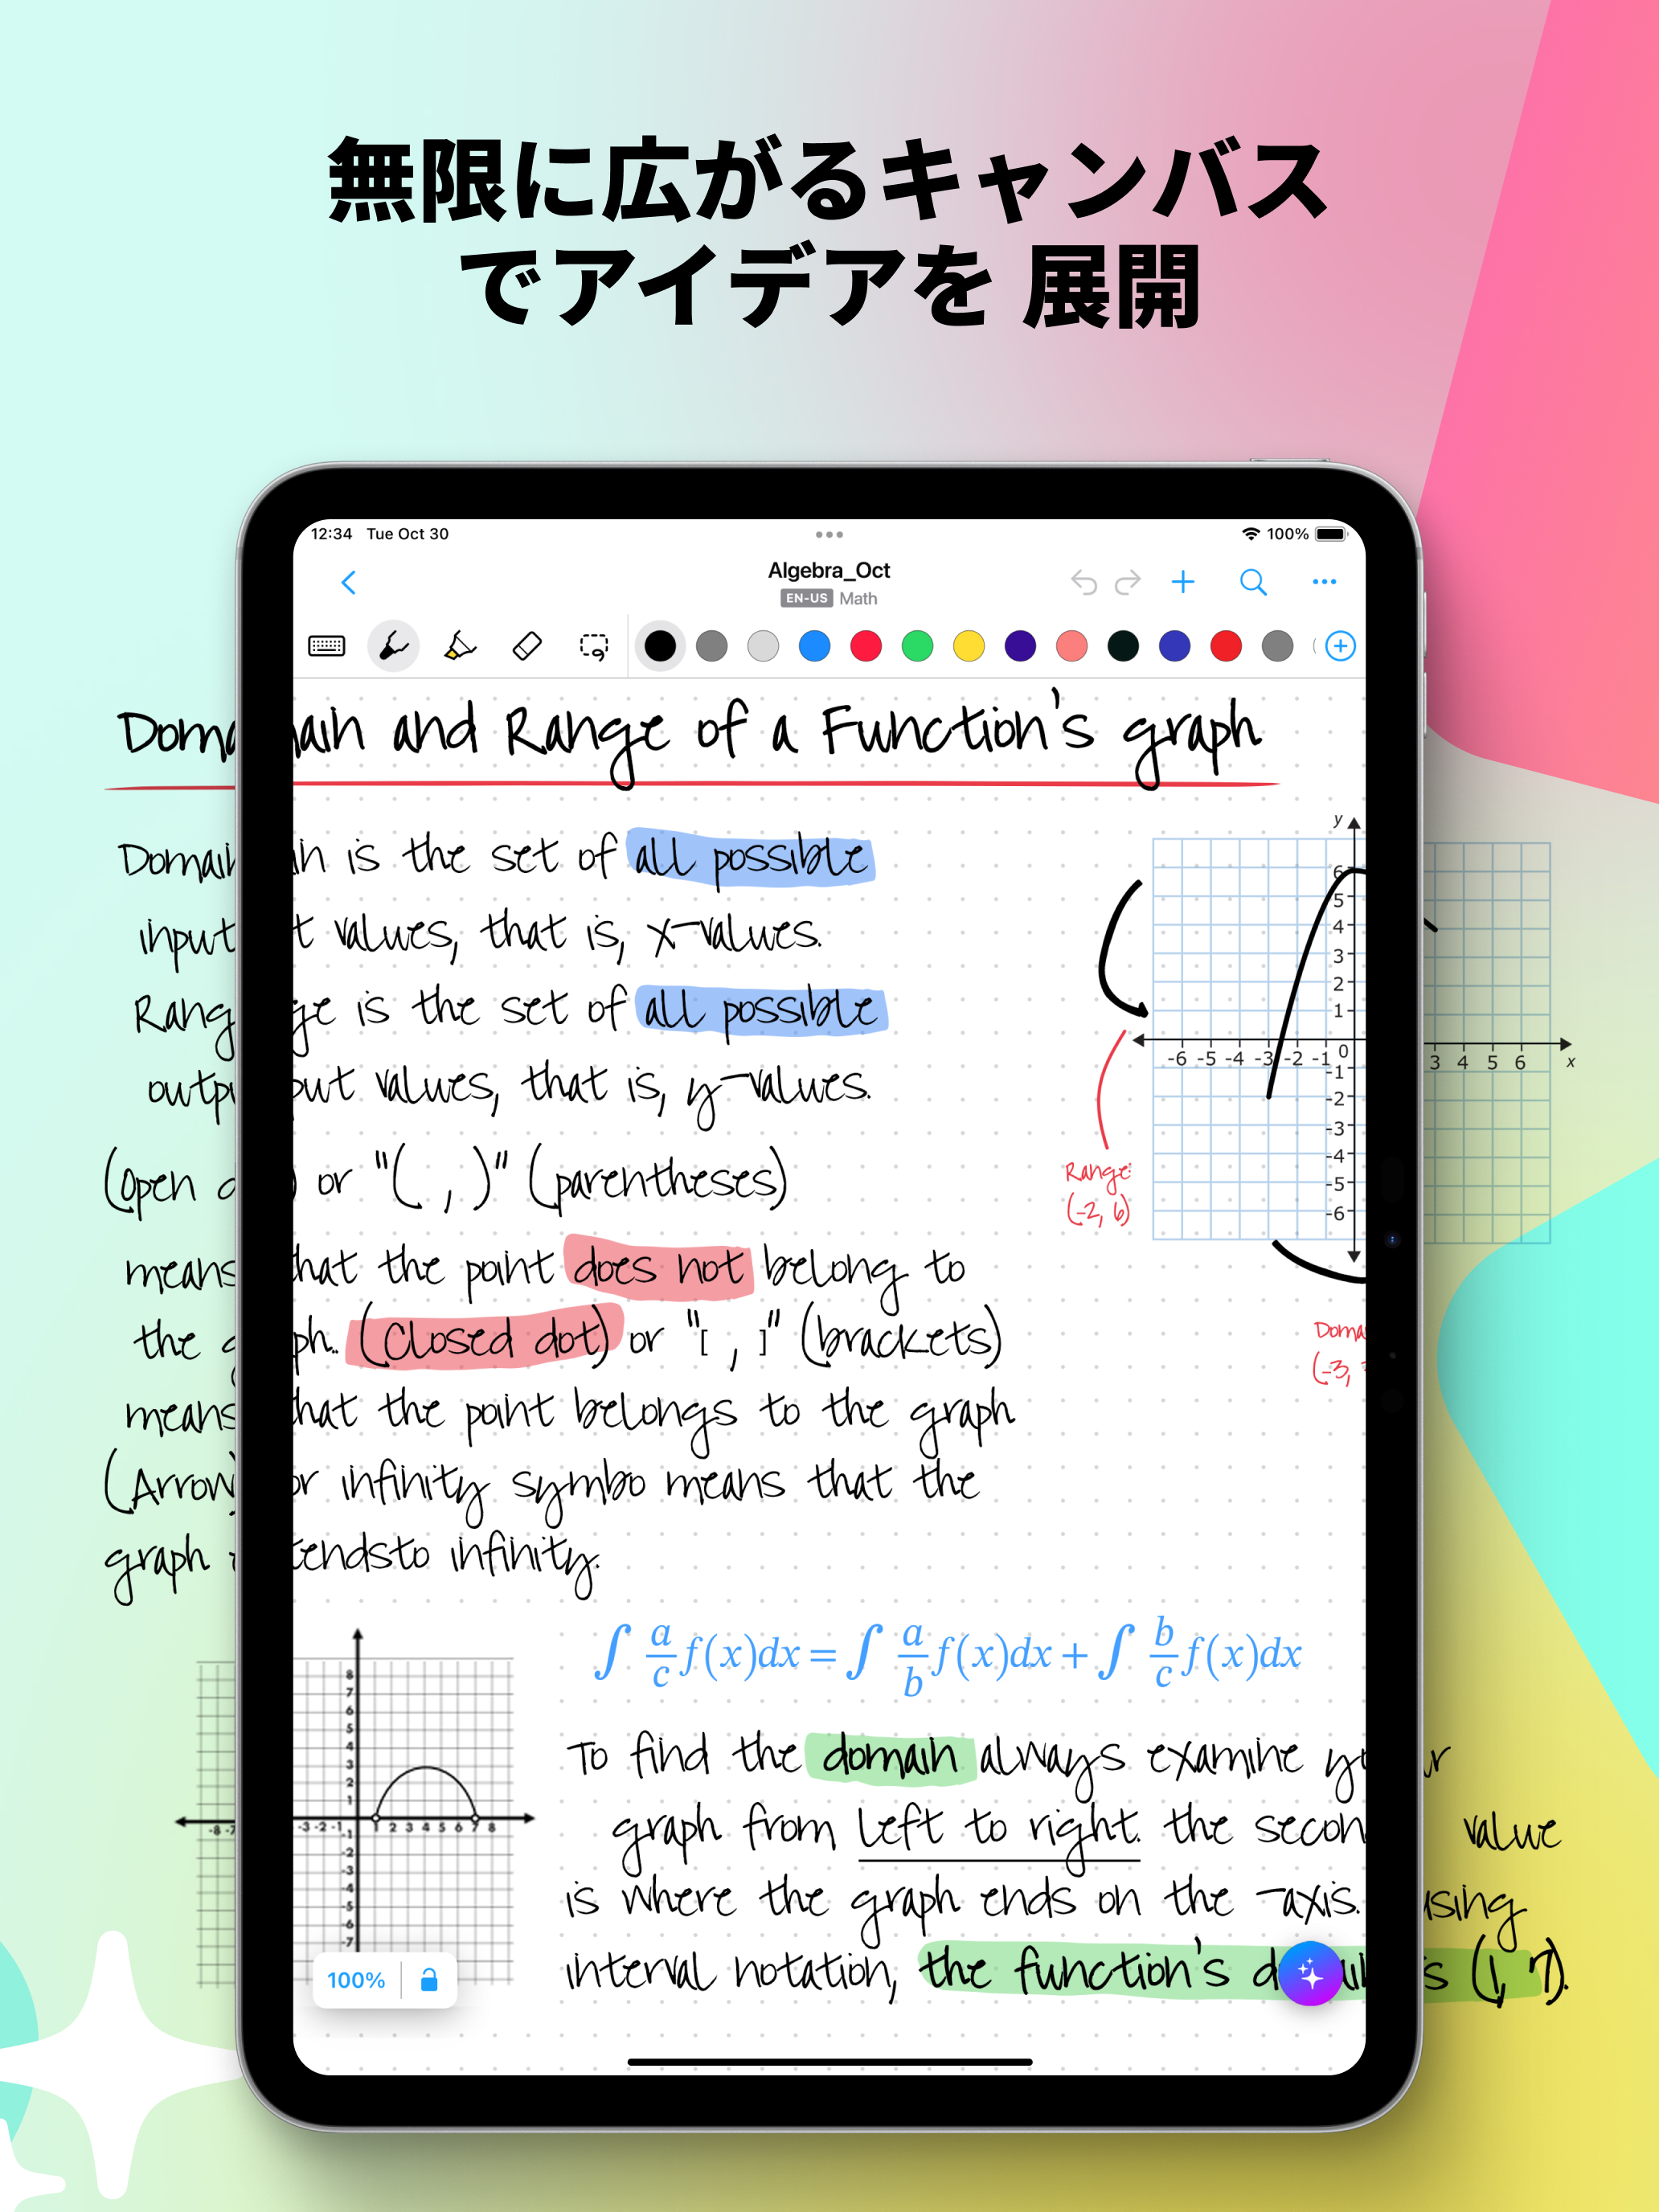 無限に広がるキャンバス
でアイデアを 展開
12:34 Tue Oct 30
100%
Algebra_Oct
EN-US Math
Domain and Range of a Function's graph
Domain is the set of all possible
input values, that is, x-values.
Range is the set of all possible
output values, that is, y-values.
(Open d) or "( , )" (parentheses)
means that the point does not belong to
the g ph.. (Closed dot) or "[ , ]" (brackets)
means that the point belongs to the graph
(Arrow) or infinity symbo means that the
graph tendsto infinity.
y
6
5
4
3
2
1
-6 -5 -4 -3 -2 -1 0 3 4 5 6 x
-1
-2
-3
-4
-5
-6
Range:
(-2, 6)
Doma
(-3,
∫ a/c f(x)dx = ∫ a/b f(x)dx + ∫ b/c f(x)dx
8
7
6
5
4
3
2
1
-8 -7 -3 -2 -1 1 2 3 4 5 6 7 8
-1
-2
-3
-4
-5
-6
-7
To find the domain always examine your
graph from left to right. the secon value
is where the graph ends on the -axis. using
interval notation, the function's d ai s (1, 7).
100%